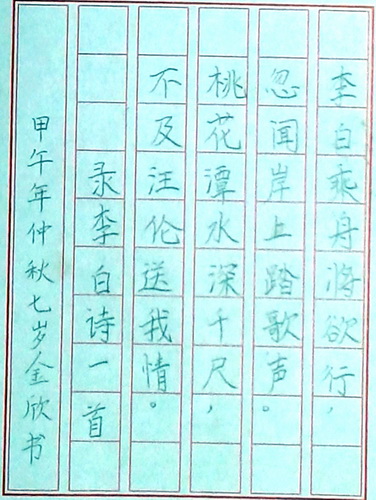 李白乘舟将欲行，
忽闻岸上踏歌声。
桃花潭水深千尺，
不及汪伦送我情。
录李白诗一首
甲午年仲秋七岁金欣书